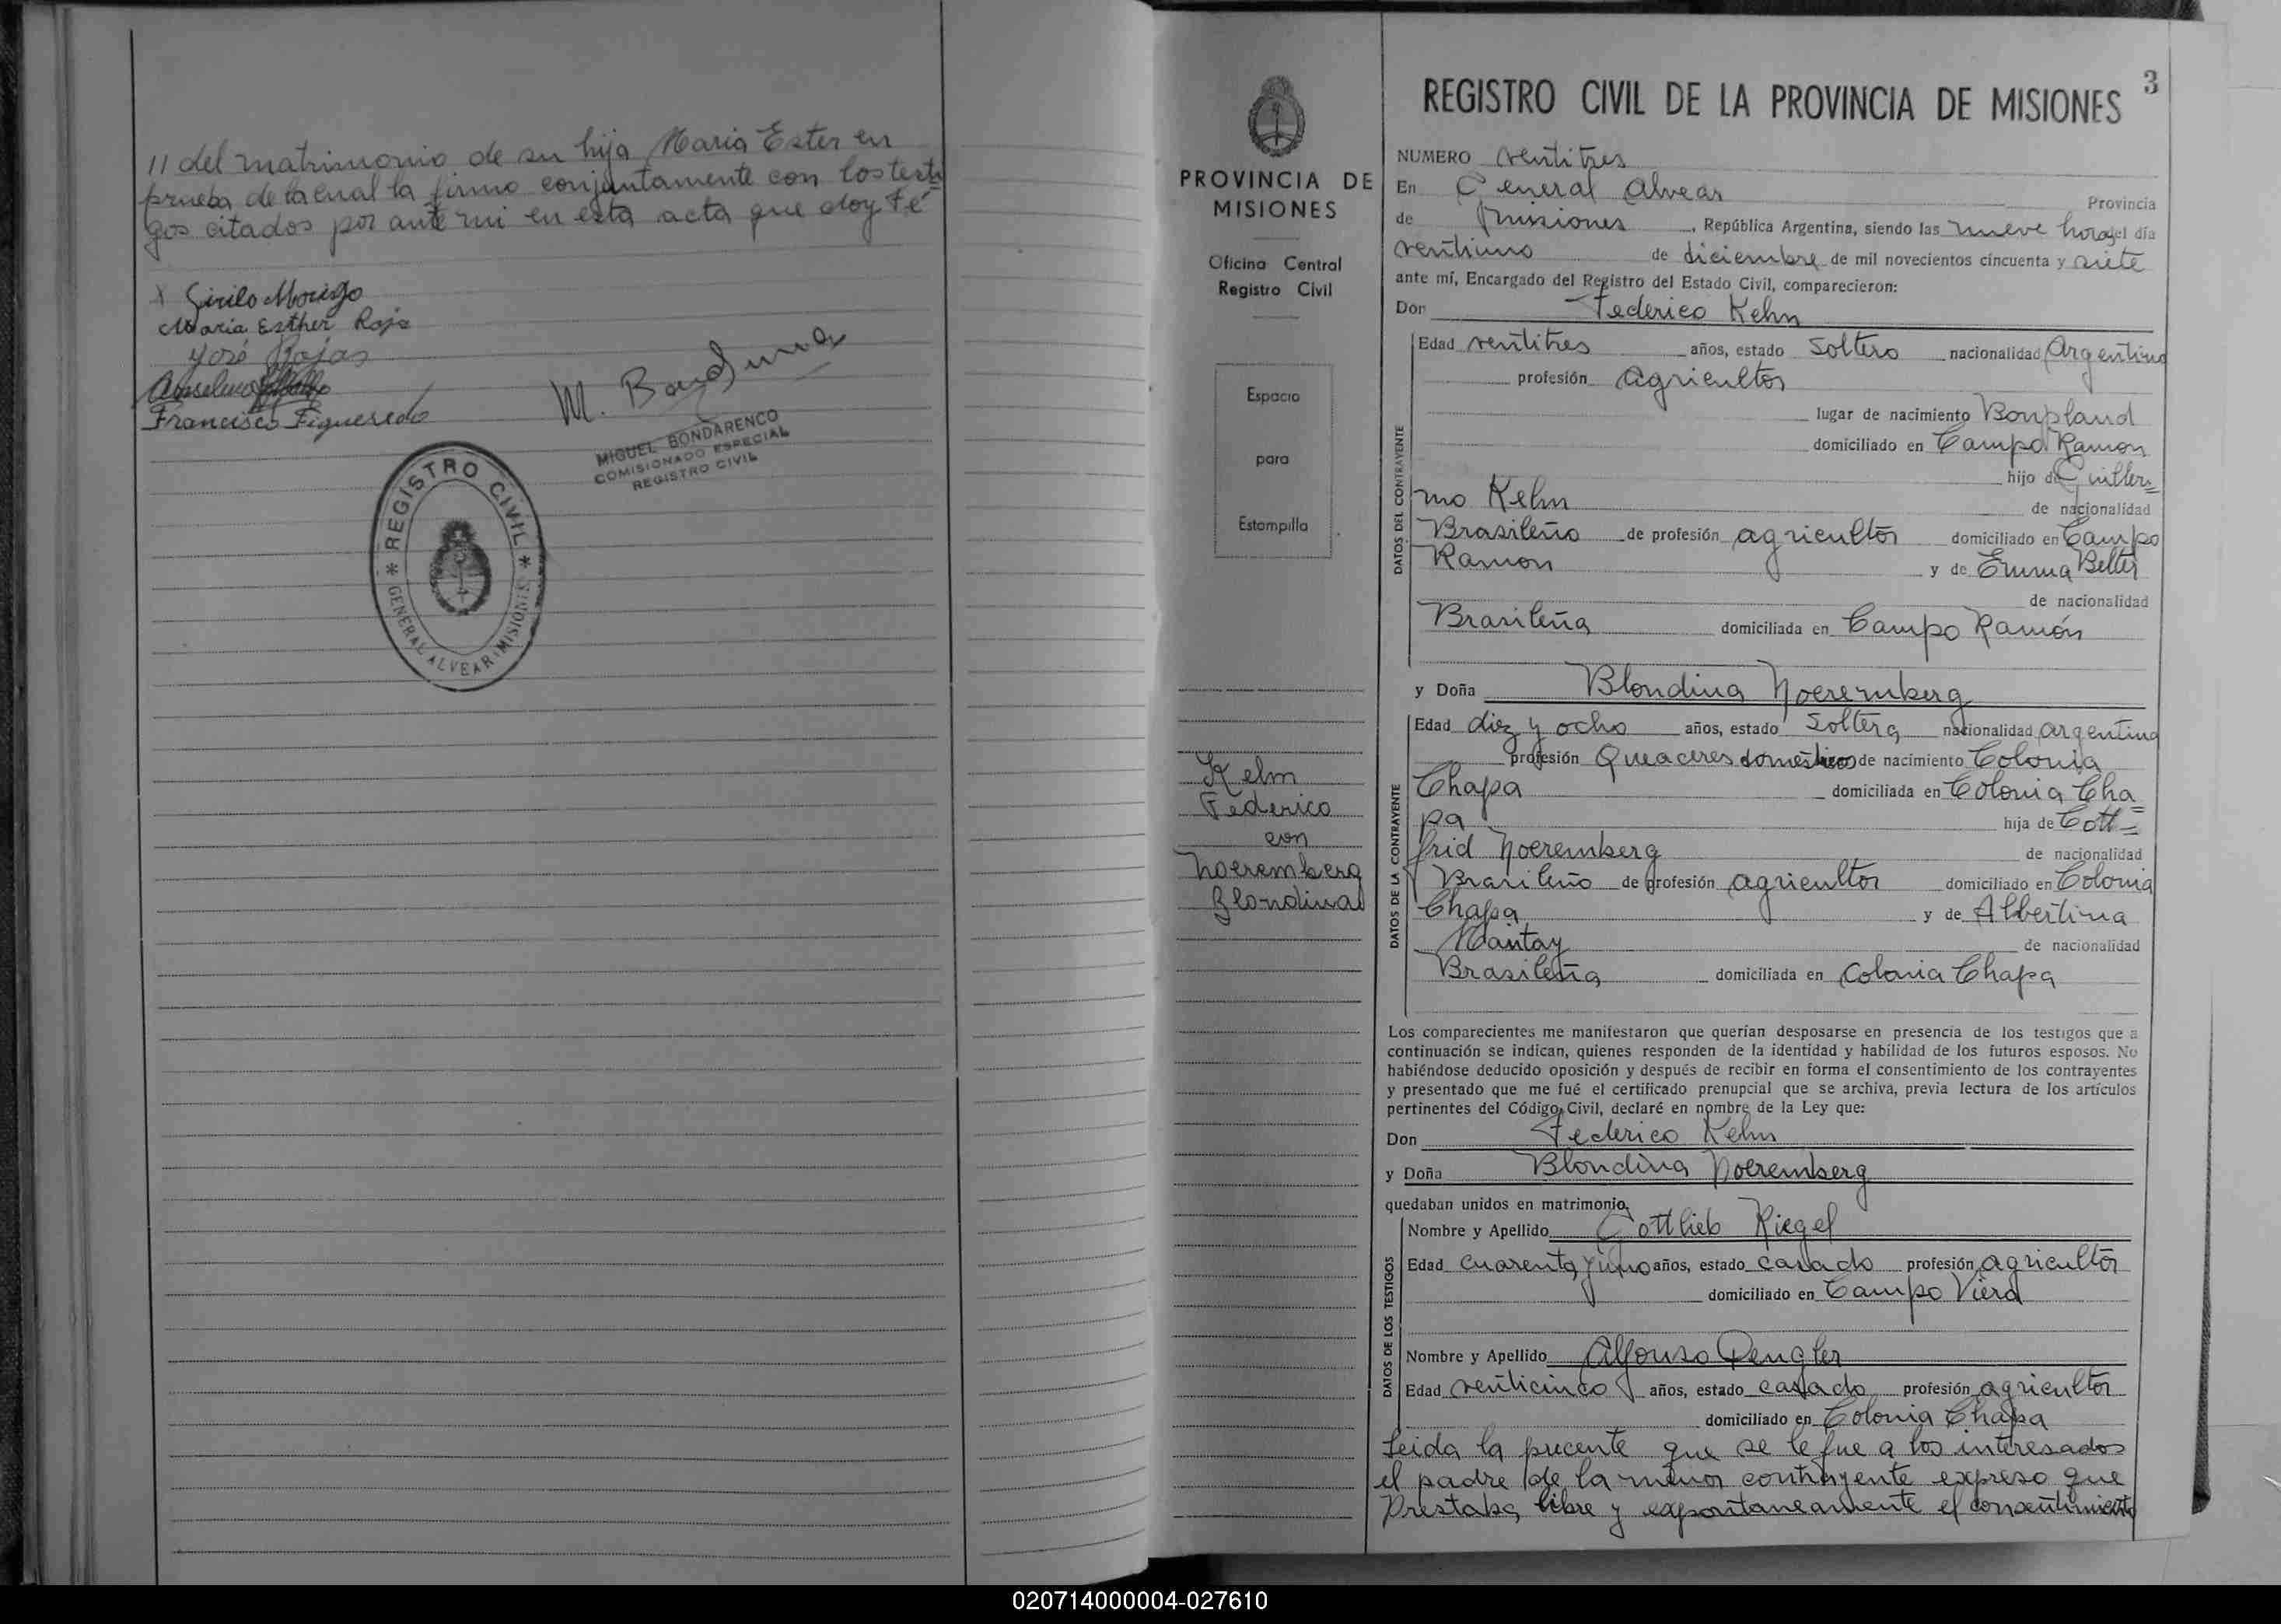 11 del matrimonio de su hija Maria Ester en
prueba de la cual la firmo conjuntamente con los testi
gos citados por ante mi en esta acta que doy fé
Cirilo Morigo
Maria Esther Roja
José Rojas
Anselmo
Francisco Figueredo
M. Bondarenco
MIGUEL BONDARENCO
COMISIONADO ESPECIAL
REGISTRO CIVIL
* REGISTRO CIVIL *
GENERAL ALVEAR-MISIONES
PROVINCIA DE
MISIONES
Oficina Central
Registro Civil
Espacio
para
Estampilla
Kelm
Federico
con
Noeremberg
Blondina
3
REGISTRO CIVIL DE LA PROVINCIA DE MISIONES
NUMERO ventitres
En General Alvear Provincia
de Misiones, República Argentina, siendo las nueve horas del día
ventiuno de diciembre de mil novecientos cincuenta y siete
ante mí, Encargado del Registro del Estado Civil, comparecieron:
Don Federico Kelm
DATOS DEL CONTRAYENTE
Edad ventitres años, estado Soltero nacionalidad Argentino
profesión Agricultor
lugar de nacimiento Bonpland
domiciliado en Campo Ramon
hijo de Guiller=
mo Kelm
de nacionalidad
Brasileño de profesión agricultor domiciliado en Campo
Ramon y de Emma Belter
de nacionalidad
Brasileña domiciliada en Campo Ramón
y Doña Blondina Noeremberg
DATOS DE LA CONTRAYENTE
Edad diez y ocho años, estado Soltera nacionalidad argentina
profesión Queaceres domésticos de nacimiento Colonia
Chapa domiciliada en Colonia Cha=
pa hija de Gott=
frid Noeremberg de nacionalidad
Brasileño de profesión agricultor domiciliado en Colonia
Chapa y de Albertina
Mantay de nacionalidad
Brasileña domiciliada en Colonia Chapa
Los comparecientes me manifestaron que querían desposarse en presencia de los testigos que a
continuación se indican, quienes responden de la identidad y habilidad de los futuros esposos. No
habiéndose deducido oposición y después de recibir en forma el consentimiento de los contrayentes
y presentado que me fué el certificado prenupcial que se archiva, previa lectura de los artículos
pertinentes del Código Civil, declaré en nombre de la Ley que:
Don Federico Kelm
y Doña Blondina Noeremberg
quedaban unidos en matrimonio.
DATOS DE LOS TESTIGOS
Nombre y Apellido Gottlieb Riegel
Edad cuarenta y uno años, estado casado profesión agricultor
domiciliado en Campo Viera
Nombre y Apellido Alfonso Dengler
Edad venticinco años, estado casado profesión agricultor
domiciliado en Colonia Chapa
Leida la precente que se le fue a los interesados
el padre de la menor contrayente expreso que
Prestaba libre y expontaneamente el consentimiento
020714000004-027610